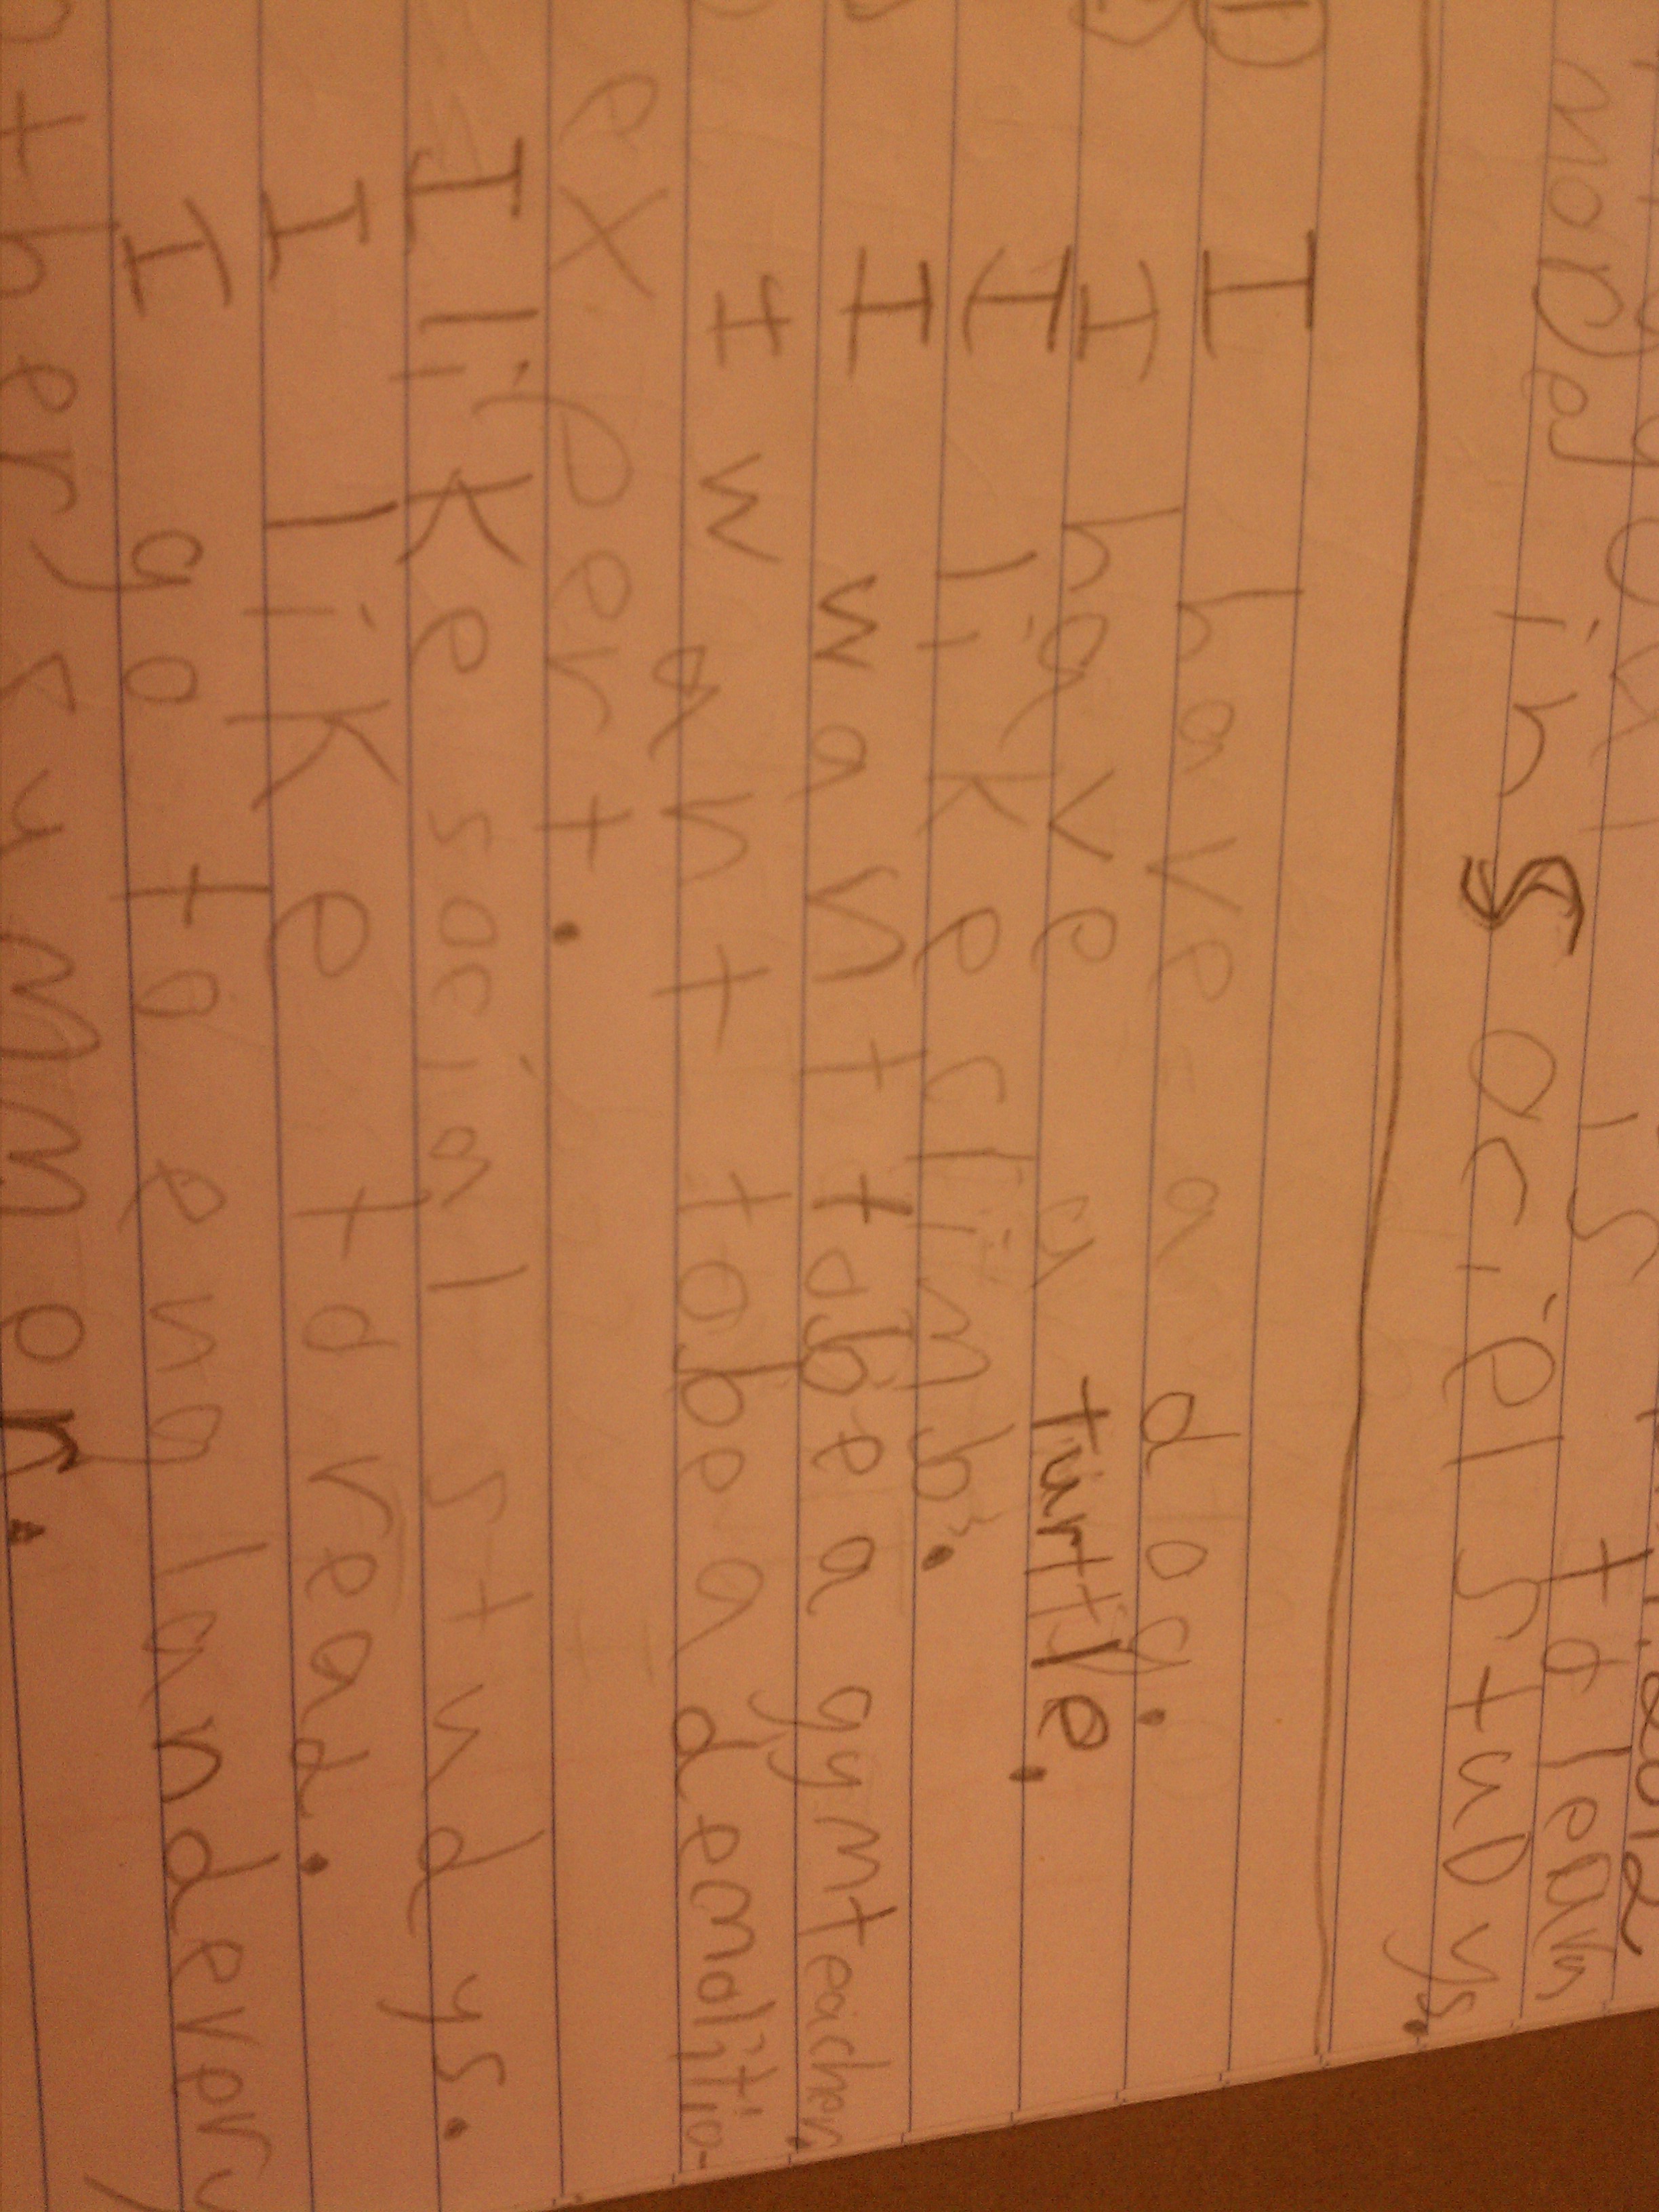 is to learn
more in socielstudys.
I have a dog.
I have a turttle.
I like climb.
I want to be a gym teacher.
I want to be a demolitio-
expert.
I like social studys.
I like to read.
I go to england every
other summor.